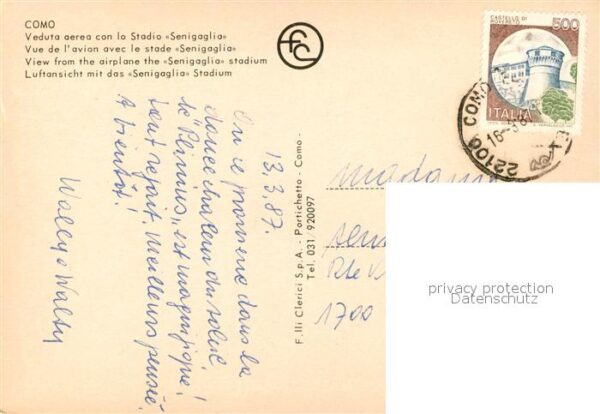 COMO
Veduta aerea con lo Stadio «Senigaglia»
Vue de l'avion avec le stade «Senigaglia»
View from the airplane the «Senigaglia» stadium
Luftansicht mit das «Senigaglia» Stadium
CASTELLO DI
ROVERETO
500
ITALIA
22100 COMO
13.3.87.
On se promène dans la
douce chaleur du soleil,
le "Plinius" est magnifique!
tout refait. Meilleurs pensée.
A bientôt!
Wally + Walty
F.lli Clerici S.p.A. - Portichetto - Como -
Tel. 031/920097
Madame
Rte
1700
privacy protection
Datenschutz